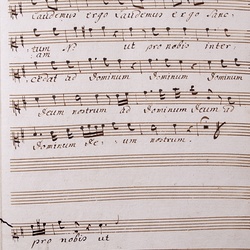 Gaudemus ergo Gaudemus ergo Sanc-
tum N ut pro nobis inter-
am
cedat ad Dominum Dominum Dominum
Deum nostrum ad Dominum Deum ad
Dominum De- um nostrum.
pro nobis ut